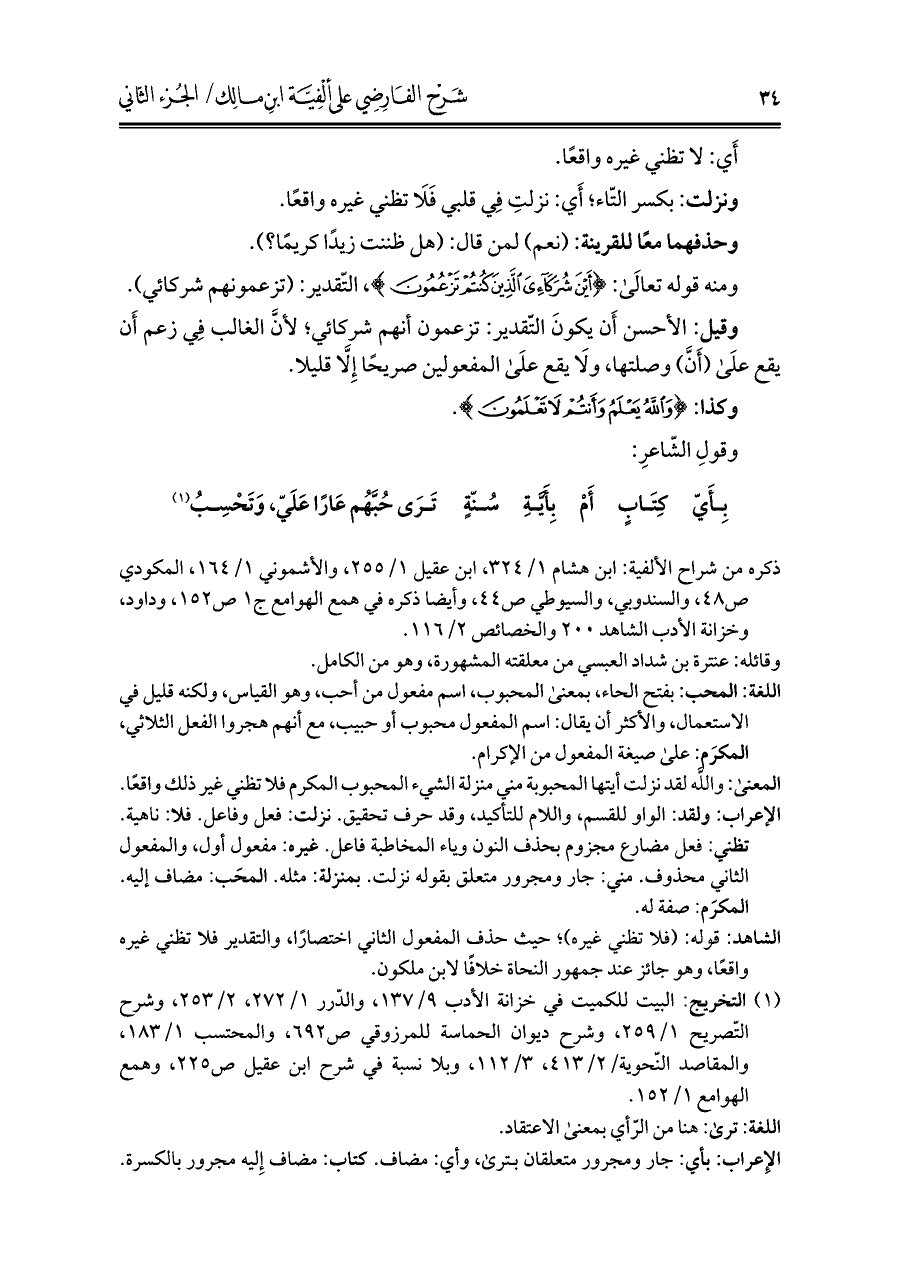 ٣٤ شرح الفارضي على ألفية ابن مالك / الجزء الثاني
أَي: لا تظني غيره واقعًا.
ونزلت: بكسر التّاء؛ أَي: نزلتِ فِي قلبي فَلَا تظني غيره واقعًا.
وحذفهما معًا للقرينة: (نعم) لمن قال: (هل ظننت زيدًا كريمًا؟).
ومنه قوله تعالَىٰ: ﴿أَيْنَ شُرَكَآءِىَ ٱلَّذِينَ كُنتُمْ تَزْعُمُونَ﴾، التّقدير: (تزعمونهم شركائي).
وقيل: الأحسن أَن يكونَ التّقدير: تزعمون أنهم شركائي؛ لأنَّ الغالب فِي زعم أَن
يقع علَىٰ (أَنَّ) وصلتها، ولَا يقع علَىٰ المفعولين صريحًا إِلَّا قليلا.
وكذا: ﴿وَٱللَّهُ يَعْلَمُ وَأَنتُمْ لَا تَعْلَمُونَ﴾.
وقولِ الشّاعرِ:
بِأَيِّ كِتَابٍ أَمْ بِأَيَّةِ سُنّةٍ تَرَى حُبَّهُم عَارًا عَلَيّ، وَتَحْسِبُ(١)
ذكره من شراح الألفية: ابن هشام ١/ ٣٢٤، ابن عقيل ١/ ٢٥٥، والأشموني ١/ ١٦٤، المكودي
ص٤٨، والسندوبي، والسيوطي ص٤٤، وأيضا ذكره في همع الهوامع ج١ ص١٥٢، وداود،
وخزانة الأدب الشاهد ٢٠٠ والخصائص ٢/ ١١٦.
وقائله: عنترة بن شداد العبسي من معلقته المشهورة، وهو من الكامل.
اللغة: المحب: بفتح الحاء، بمعنىٰ المحبوب، اسم مفعول من أحب، وهو القياس، ولكنه قليل في
الاستعمال، والأكثر أن يقال: اسم المفعول محبوب أو حبيب، مع أنهم هجروا الفعل الثلاثي،
المكرَم: علىٰ صيغة المفعول من الإكرام.
المعنىٰ: واللَّه لقد نزلت أيتها المحبوبة مني منزلة الشيء المحبوب المكرم فلا تظني غير ذلك واقعًا.
الإعراب: ولقد: الواو للقسم، واللام للتأكيد، وقد حرف تحقيق. نزلت: فعل وفاعل. فلا: ناهية.
تظني: فعل مضارع مجزوم بحذف النون وياء المخاطبة فاعل. غيره: مفعول أول، والمفعول
الثاني محذوف. مني: جار ومجرور متعلق بقوله نزلت. بمنزلة: مثله. المحَب: مضاف إليه.
المكرَم: صفة له.
الشاهد: قوله: (فلا تظني غيره)؛ حيث حذف المفعول الثاني اختصارًا، والتقدير فلا تظني غيره
واقعًا، وهو جائز عند جمهور النحاة خلافًا لابن ملكون.
(١) التخريج: البيت للكميت في خزانة الأدب ٩/ ١٣٧، والدّرر ١/ ٢٧٢، ٢/ ٢٥٣، وشرح
التّصريح ١/ ٢٥٩، وشرح ديوان الحماسة للمرزوقي ص٦٩٢، والمحتسب ١/ ١٨٣،
والمقاصد النّحوية/ ٢/ ٤١٣، ٣/ ١١٢، وبلا نسبة في شرح ابن عقيل ص٢٢٥، وهمع
الهوامع ١/ ١٥٢.
اللغة: ترىٰ: هنا من الرّأي بمعنىٰ الاعتقاد.
الإعراب: بأي: جار ومجرور متعلقان بـترىٰ، وأي: مضاف. كتاب: مضاف إليه مجرور بالكسرة.